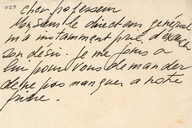 1127
cher professeur
Monsieur le directeur général
m'a instamment prié d'exaucer
son désir. Je me joins à
lui pour vous demander
de ne pas manquer à notre